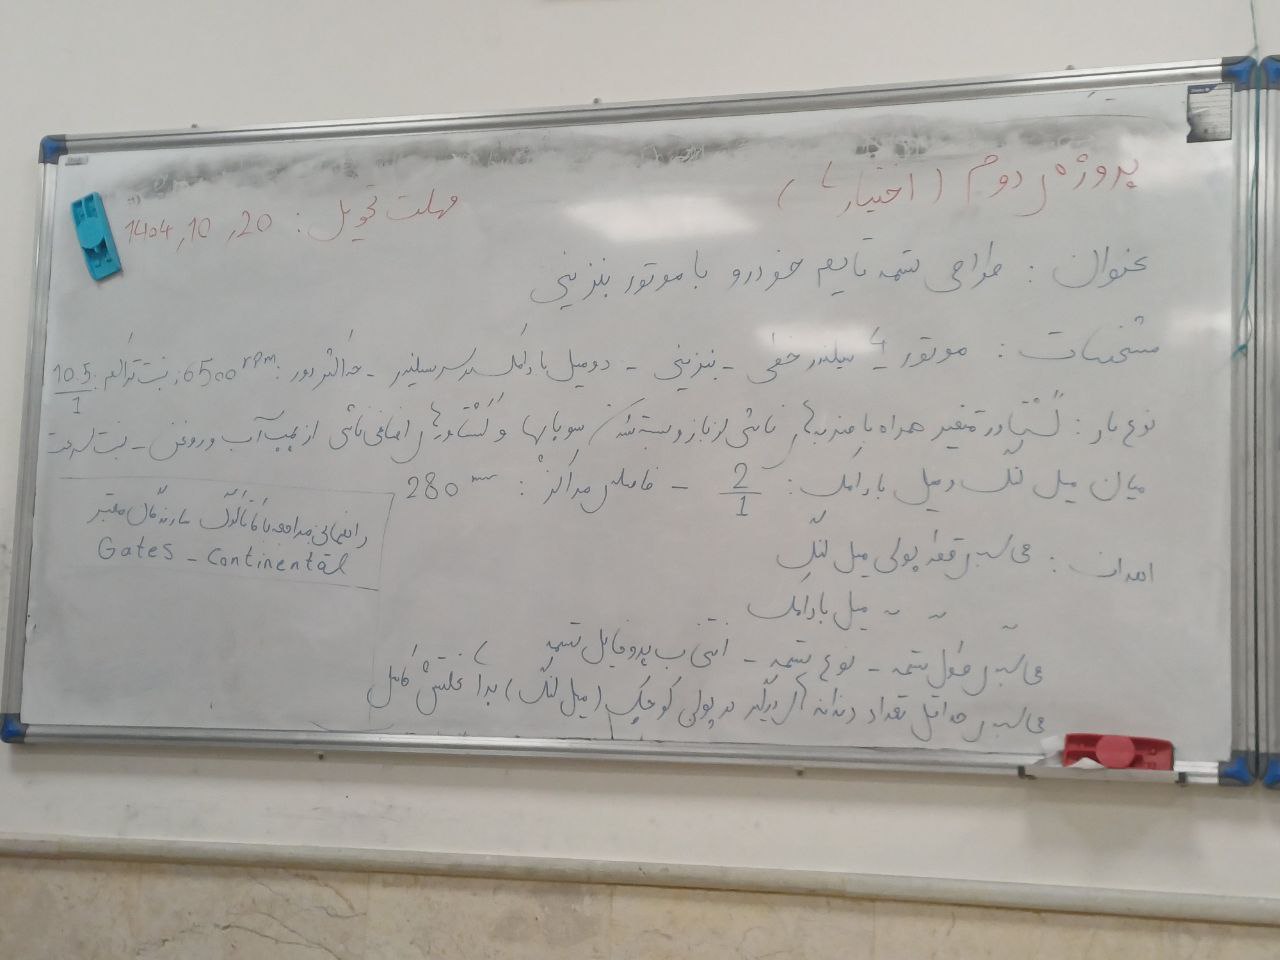 پروژه‌ی دوم (اختیاری)
مهلت تحویل: 1404,10,20
عنوان: طراحی تسمه تایم خودرو با موتور بنزینی
مشخصات: موتور 4 سیلندر خطی - بنزینی - دو میل بادامک در سر سیلندر - حداکثر دور: 6500 rpm، نسبت تراکم: 10.5/1
نوع بار: گشتاور متغیر همراه با ضربه‌های ناشی از باز و بسته شدن سوپاپها و گشتاورهای اضافی ناشی از پمپ آب و روغن - نسبت سرعت
میان میل لنگ و میل بادامک: 2/1 - فاصله‌ی مراکز: 280 mm
راهنمایی: مراجعه با کاتالوگ سازندگان معتبر
Gates - Continental
اهداف: محاسبه‌ی قطر پولی میل لنگ
" " " میل بادامک
محاسبه‌ی طول تسمه - نوع تسمه - انتخاب پروفایل تسمه
محاسبه‌ی حداقل تعداد دندانه‌ی درگیر در پولی کوچک (میل لنگ) برای